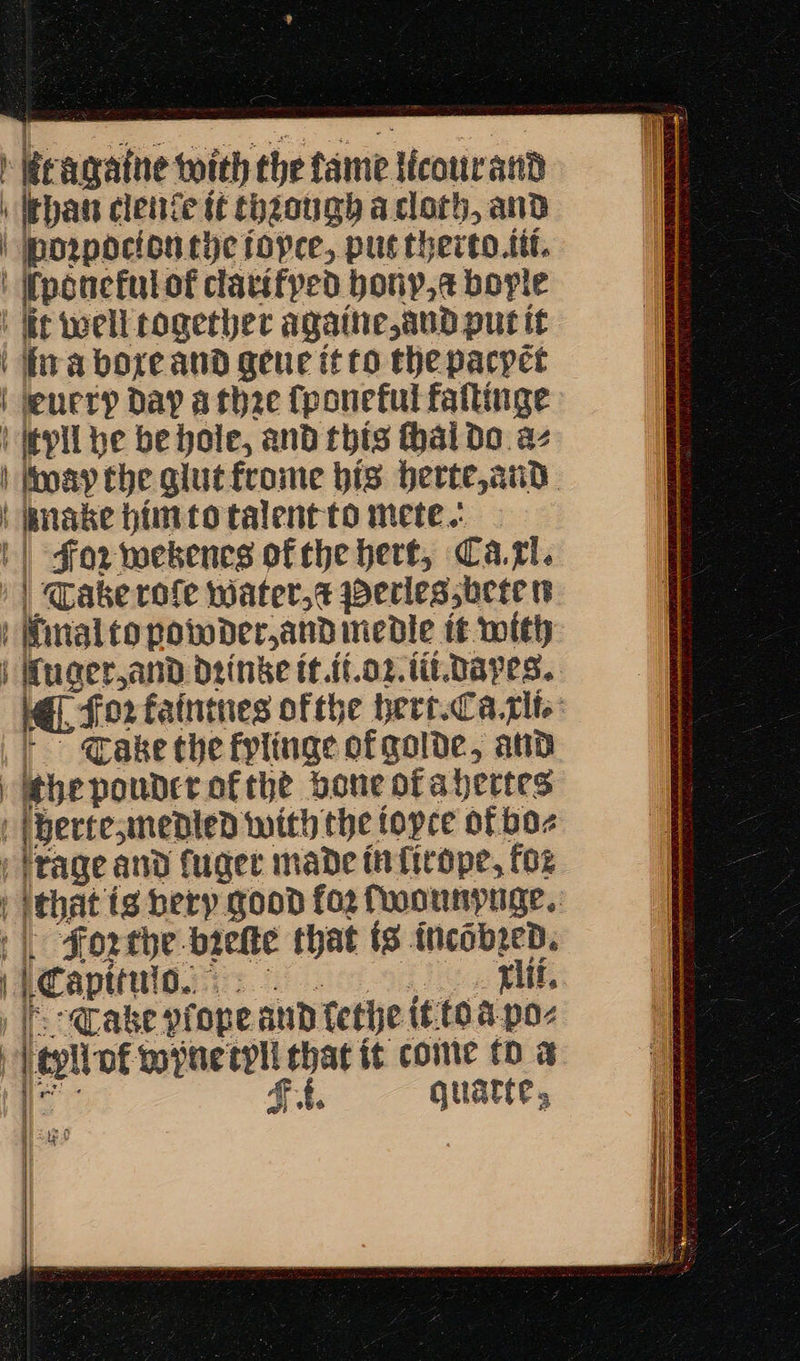 it againe with the same licour and
than clense it through a cloth, and
porpocion the ioyce, put therto .iii.
sponeful of clarifyed hony, & boyle
it well together againe, and put it
in a boxe and geue it to the pacyēt
euery day a thre sponeful fastinge
tyll he be hole, and this shal do a⸗
way the glut frome his herte, and
make him to talent to mete.
For wekenes of the hert, Ca.xl.
Take rose water, & Perles, beten
smal to powder, and medle it with
suger, and drinke it .ii. or .iii. dayes.
¶ For faintnes of the hert. Ca.xli.
Take the fylinge of golde, and
the pouder of the bone of a hertes
herte, medled with the ioyce of bo⸗
rage and suger made in sirope, for
that is very good for swounynge.
For the breste that is incōbred.
Capitulo. xlii.
Take ysope and sethe it to a po⸗
tyll of wyne tyll that it come to a
F.i. quarte,